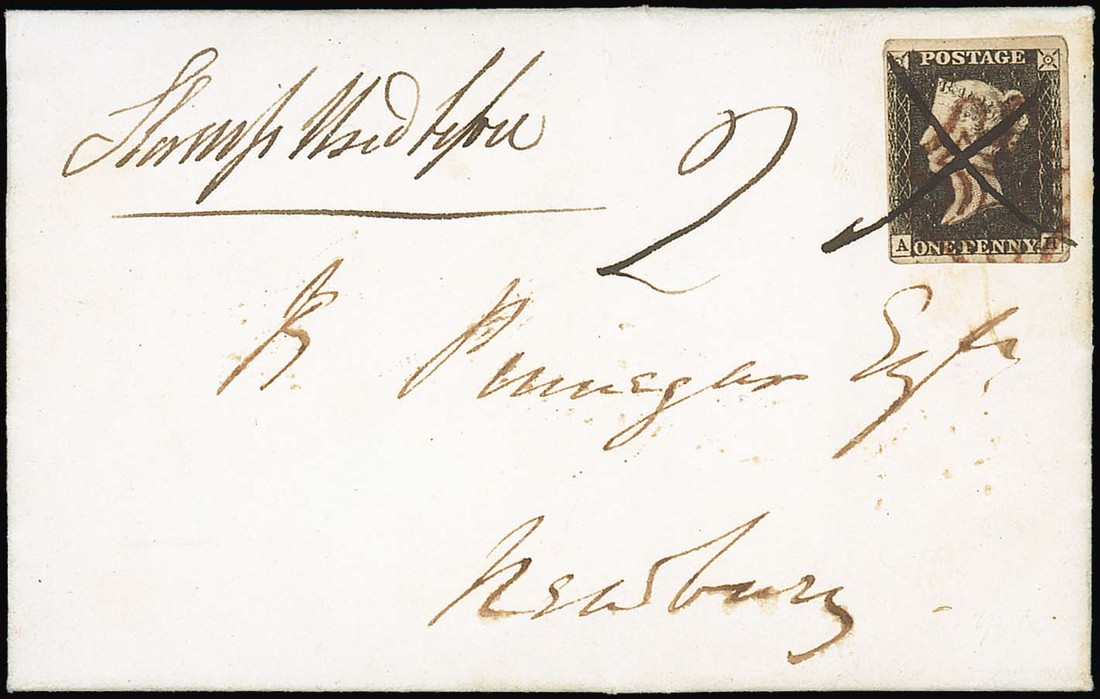 POSTAGE
Stamp Used before
2
A ONE PENNY H
R Pinniger Esqr
Newbury